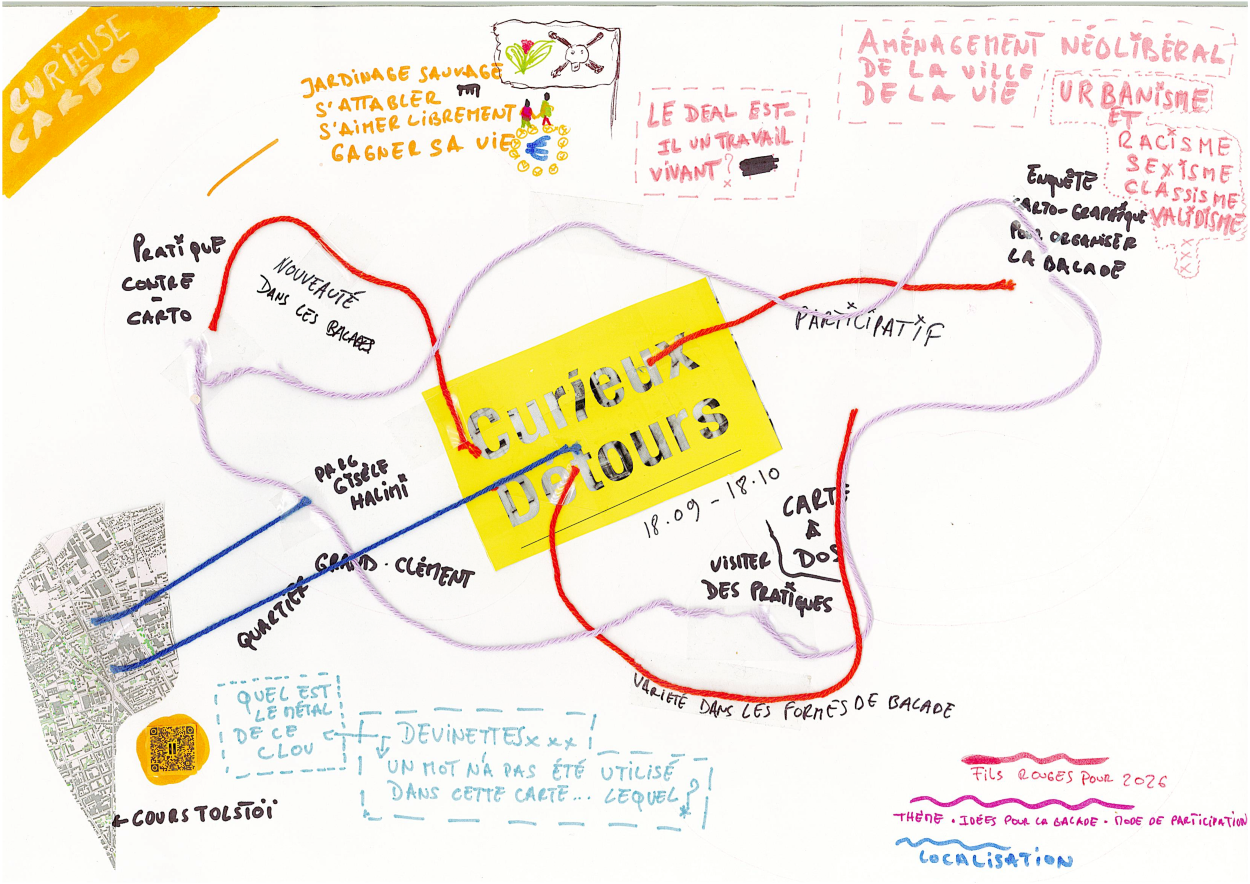 CURIEUSE
CARTO
JARDINAGE SAUVAGE
S'ATTABLER
S'AIMER LIBREMENT
GAGNER SA VIE
€
LE DEAL EST-
IL UN TRAVAIL
VIVANT?
AMÉNAGEMENT NÉOLIBÉRAL
DE LA VILLE
DE LA VIE
URBANISME
ET
RACISME
SEXISME
CLASSISME
VALIDISME
x
x
x
ENQUÊTE
CARTO-GRAPHIQUE
POUR ORGANISER
LA BALADE
PRATIQUE
CONTRE
-
CARTO
NOUVEAUTÉ
DANS LES BALADES
PARTICIPATIF
Curieux
Détours
18.09 - 18.10
PARC
GISÈLE
HALIMI
QUARTIER GRAND-CLÉMENT
CARTE
À
DOS
VISITER
DES PRATIQUES
VARIÉTÉ DANS LES FORMES DE BALADE
QUEL EST
LE MÉTAL
DE CE
CLOU
DEVINETTES x x x
UN MOT N'A PAS ÉTÉ UTILISÉ
DANS CETTE CARTE... LEQUEL?
← COURS TOLSTOÏ
FILS ROUGES POUR 2026
THÈME • IDÉES POUR LA BALADE • MODE DE PARTICIPATION
LOCALISATION